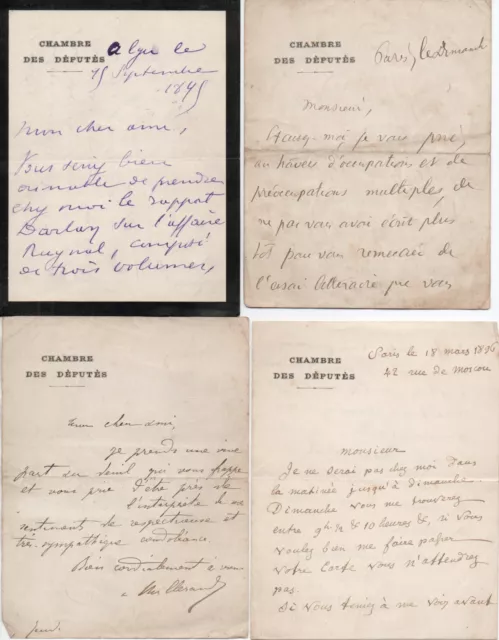 CHAMBRE
DES DÉPUTÉS
Alger le
15 Septembre
1895
Mon cher ami,
Vous seriez bien
aimable de prendre
chez moi le rapport
Darlan sur l'affaire
Raynal, composé
de trois volumes,
CHAMBRE
DES DÉPUTÉS
Paris, le Dimanche
Monsieur,
Excusez-moi, je vous prie,
au travers d'occupations et de
préoccupations multiples de
ne pas vous avoir écrit plus
tôt pour vous remercier de
l'essai littéraire que vous
CHAMBRE
DES DÉPUTÉS
Mon cher ami,
je prends une vive
part au deuil qui vous frappe
et vous prie d'être près de
l'interprète de mes
sentiments de respectueuse et
très sympathique condoléance.
Bien cordialement à vous
Millerand
jeudi
CHAMBRE
DES DÉPUTÉS
Paris le 18 mars 1896
42 rue de Moscou
Monsieur
Je ne serai pas chez moi dans
la matinée jusqu'à dimanche.
Dimanche vous me trouverez
entre 9h & 10 heures &, si vous
voulez bien me faire passer
votre carte vous n'attendrez
pas.
Si vous teniez à me voir avant